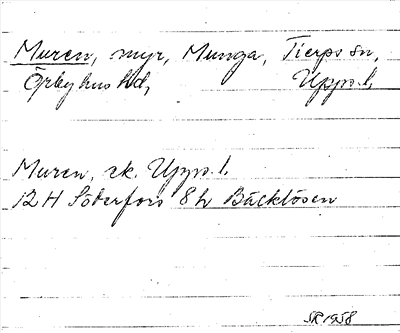 Muren, myr, Munga, Tierps sn,
Örbyhus hd, Uppn.l,
Muren, ek. Uppn.l.
12 H Söderfors 8 h Bäcklösen
SR 1958